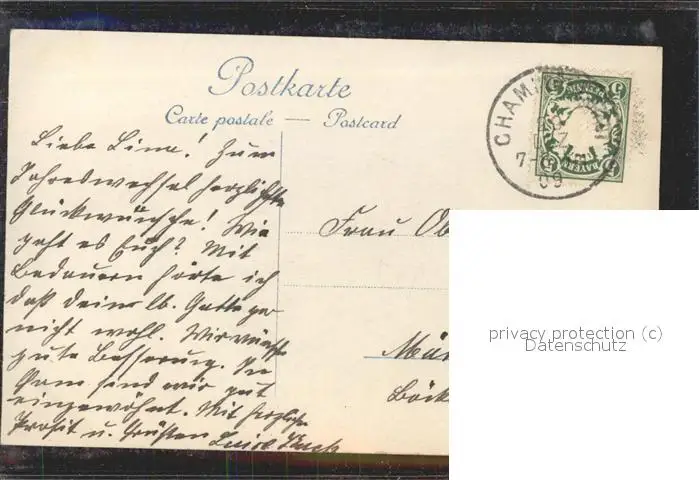 Postkarte
Carte postale — Postcard
Liebe Lina! Zum
Jahreswechsel herzlichste
Glückwünsche! Wie
geht es Euch? Mit
Bedauern hörte ich
daß dein lb. Gatte gar
nicht wohl. Wir wünschen
gute Besserung. In
Cham sind wir gut
eingewöhnt. Mit herzlichem
Prosit u. Grüßen Luise
CHAM
7-
09
5 5
BAYERN
Frau Ob
Mün
Böck
privacy protection (c)
Datenschutz